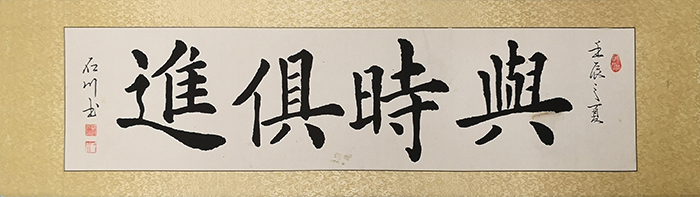 壬辰之夏
與時俱進
石川书